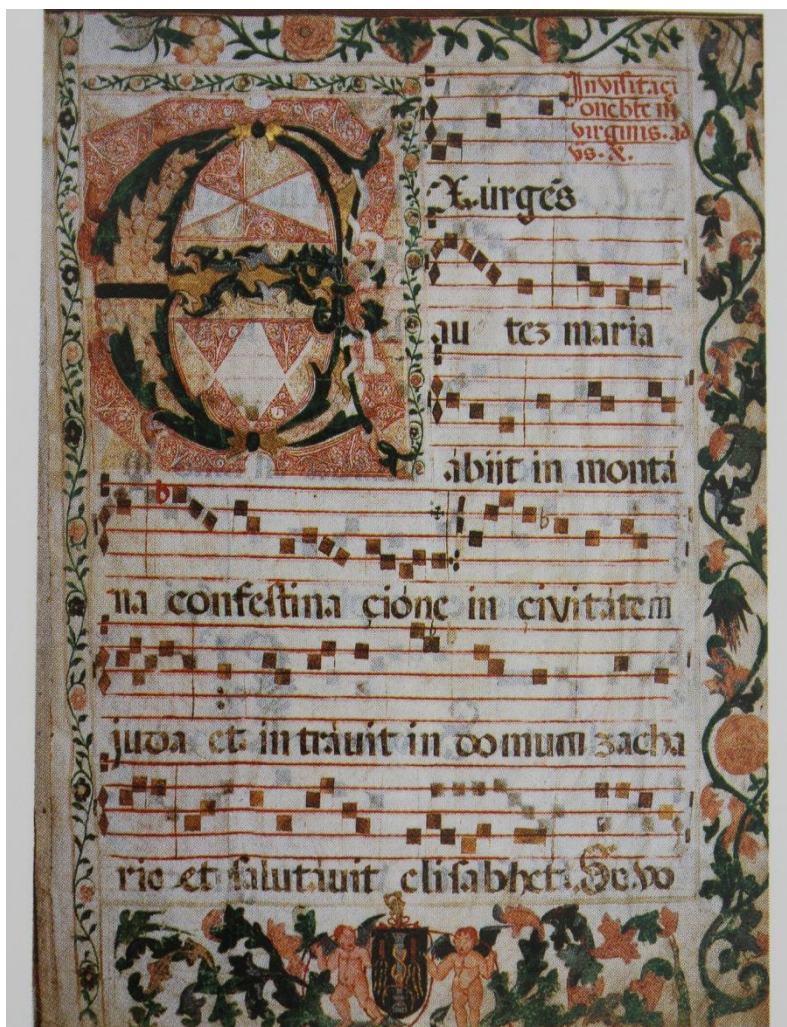 In visitaçi
one bte m
virginis. ad
vs. X.
EXurgēs
au tez maria
abiit in monta
na confestina çione in çivitatem
juda et in travit in domum zacha
rie et salutavit elisabhet. Se vo